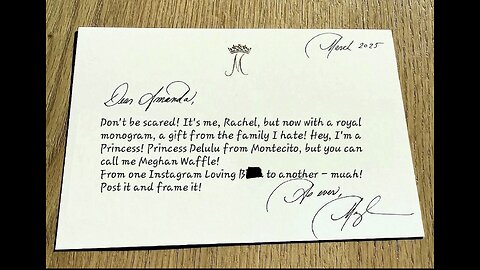 March 2025
M
Dear Amanda,
Don't be scared! It's me, Rachel, but now with a royal
monogram, a gift from the family I hate! Hey, I'm a
Princess! Princess Delulu from Montecito, but you can
call me Meghan Waffle!
From one Instagram Loving B to another – muah!
Post it and frame it!
As ever,